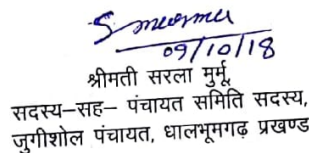 S murmu
09/10/18
श्रीमती सरला मुर्मू
सदस्य-सह- पंचायत समिति सदस्य,
जुगीशोल पंचायत, धालभूमगढ़ प्रखण्ड